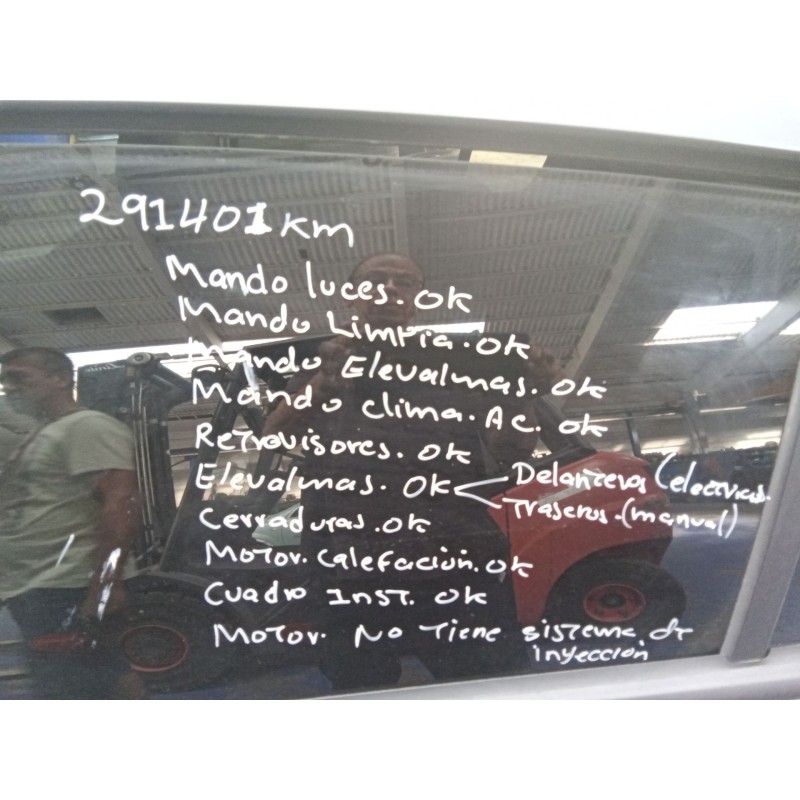 291401 km
Mando luces. OK
Mando Limpia. OK
Mando Elevalunas. OK
Mando clima. AC. OK
Retrovisores. OK
Elevalunas. OK
Delanteros (electricos.
Traseros. (manual)
Cerraduras. OK
Motor. Calefacion. OK
Cuadro Inst. OK
Motor. No Tiene sistema de
inyeccion